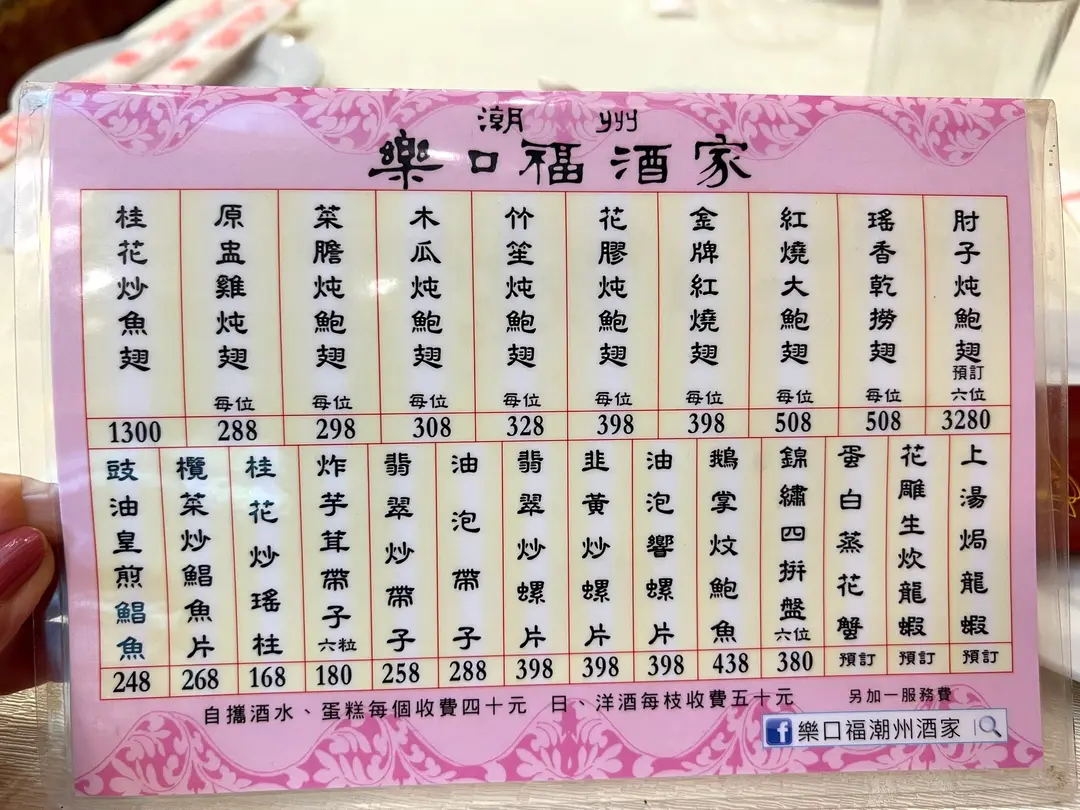 潮州
樂口福酒家
桂花炒魚翅
1300
原盅雞炖翅
每位
288
菜膽炖鮑翅
每位
298
木瓜炖鮑翅
每位
308
竹笙炖鮑翅
每位
328
花膠炖鮑翅
每位
398
金牌紅燒翅
每位
398
紅燒大鮑翅
每位
508
瑤香乾撈翅
每位
508
肘子炖鮑翅
預訂
六位
3280
豉油皇煎鯧魚
248
欖菜炒鯧魚片
268
桂花炒瑤柱
168
炸芋茸帶子
六粒
180
翡翠炒帶子
258
油泡帶子
288
翡翠炒螺片
398
韭黃炒螺片
398
油泡響螺片
398
鵝掌炆鮑魚
438
錦繡四拼盤
六位
380
蛋白蒸花蟹
預訂
花雕生炊龍蝦
預訂
上湯焗龍蝦
預訂
自攜酒水、蛋糕每個收費四十元 日、洋酒每枝收費五十元 另加一服務費
f 樂口福潮州酒家